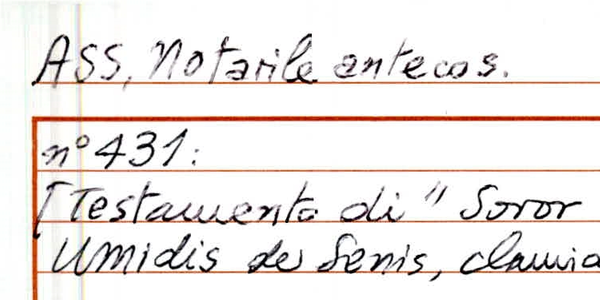 ASS, Notarile antecos.
n° 431:
[Testamento di " Soror
Umidis de Senis,